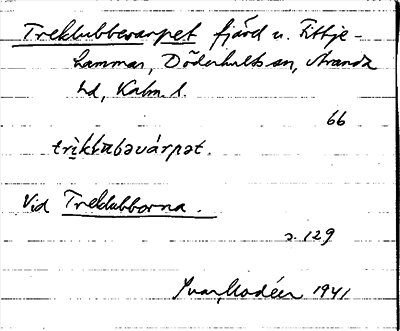 Treklubbevarpet fjärd u. Fittje-
hammar, Döderhults sn, Stranda
hd, Kalm. l.
66
trìkkɩbəvárpət.
Vid Treklubborna.
s. 129
Ivar Modéer 1941